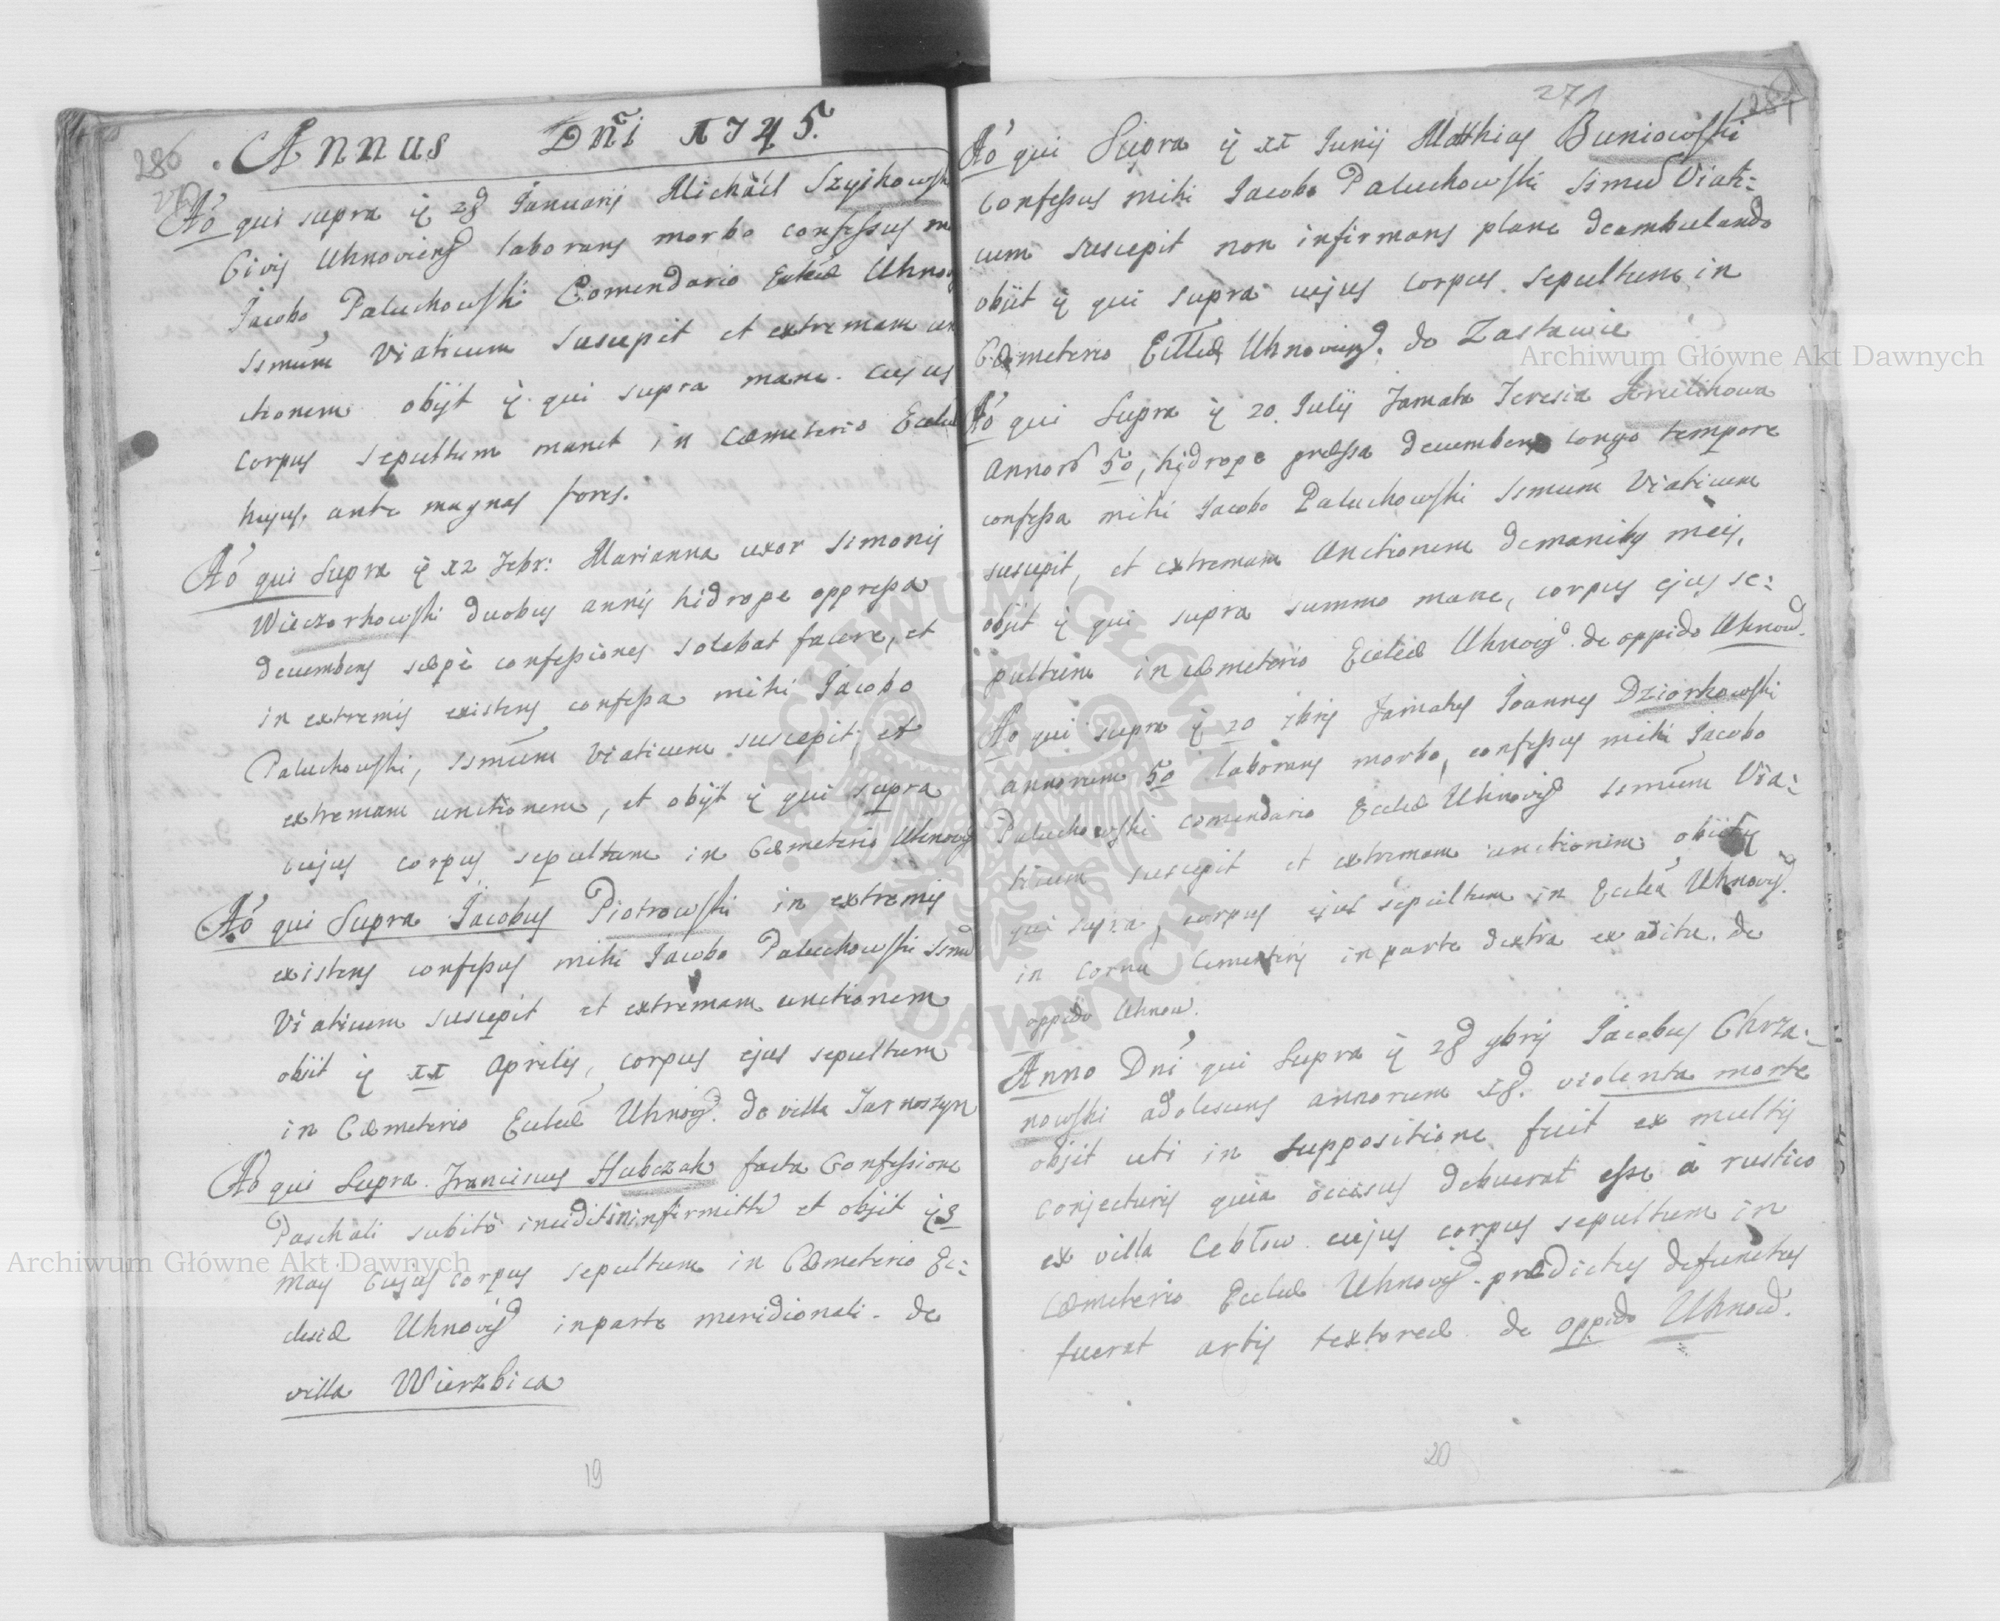 280
Annus Dñi 1745.
Aó qui supra ÿ 28 Januarij Michäel Szyikowski
Civis Uhnoviens laborans morbo confessus
Jacobo Paluchowski Comendario Eccleæ Uhnov
SSmum Viaticum suscepit et extremam un
ctionem obijt ÿ qui supra mane. cujus
corpus sepultum manet in Cæmeterio Ecclæ
hujus. ante magnas fores.
Aó qui Supra ÿ 12 Febr: Marianna uxor Simonis
Wieczorkowski duobus annis hidrope oppressa
decumbens sæpè confessiones solebat facere, et
in extremis existens confessa mihi Jacobo
Paluchowski, SSmum Viaticum suscepit, et
extremam unctionem, et obijt ÿ qui supra
cujus corpus sepultum in Cæmeterio Uhnov
Aó qui Supra Jacobus Piotrowski in extremis
existens confessus mihi Jacobo Paluchowski SSmu
Viaticum suscepit et extremam unctionem
obiit ÿ XX Aprilis, corpus ejus sepultum
in Cæmeterio Eccleæ Uhnov. de villa Jarnoszyn
Aó qui Supra Franciscus Hubczak facta Confessione
Paschali subitò incidit in infirmitte et obijt ÿ 3
May Cujus corpus sepultum in Cæmeterio Ec:
clesiæ Uhnov in parte meridionali. de
villa Wierzbica
19
271
281
Aó qui Supra ÿ XX Junij Matthias Buniowski
Confessus mihi Jacobo Paluchowski SSmu Viati:
cum suscepit non infirmans plane deambulando
obijt ÿ qui supra cujus corpus sepultum in
Cæmeterio Eccleæ Uhnovien. do Zastawie
Aó qui Supra ÿ 20 Julij Famata Teresia
Annorū 50, hidrope præssa decumbens longo tempore
confessa mihi Jacobo Paluchowski SSmum Viaticum
suscepit, et extremam Unctionem de manibus meis.
obijt ÿ qui supra summo mane, corpus ejus se:
pultum in cæmeterio Eccleæ Uhnov. de oppido Uhnow.
Aó qui supra ÿ 20 7bris Famatus Joannes Dziorkowski
annorum 50 laborans morbo, confessus mihi Jacobo
Paluchowski comendario Eccleæ Uhnov SSmum Via:
ticum suscepit et extremam unctionem obiit ÿ
qui supra, corpus ejus sepultum in Ecclea Uhnov.
in Cornu Cementerij in parte dextra ex aditu. de
oppido Uhnow.
Anno Dni qui Supra ÿ 28 9bris Jacobus Chrza:
nowski adolescens annorum 18. violenta morte
obijt uti in suppositione fuit ex multis
conjecturis quia occisus debuerat esse à rustico
ex villa Cebłow cujus corpus sepultum in
Cæmeterio Eccleæ Uhnov. prædictus defunctus
fuerat artis textoreæ de oppido Uhnow.
20
Archiwum Główne Akt Dawnych
Archiwum Główne Akt Dawnych
ARCHIWUM GŁÓWNE AKT DAWNYCH